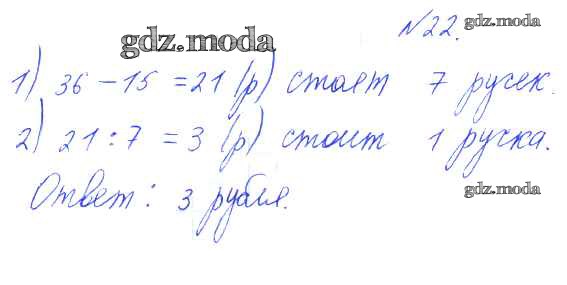 №22. gdz.moda
gdz.moda
1) 36 – 15 = 21 (р) стоят 7 ручек.
2) 21 : 7 = 3 (р) стоит 1 ручка.
Ответ: 3 рубля.
gdz.moda